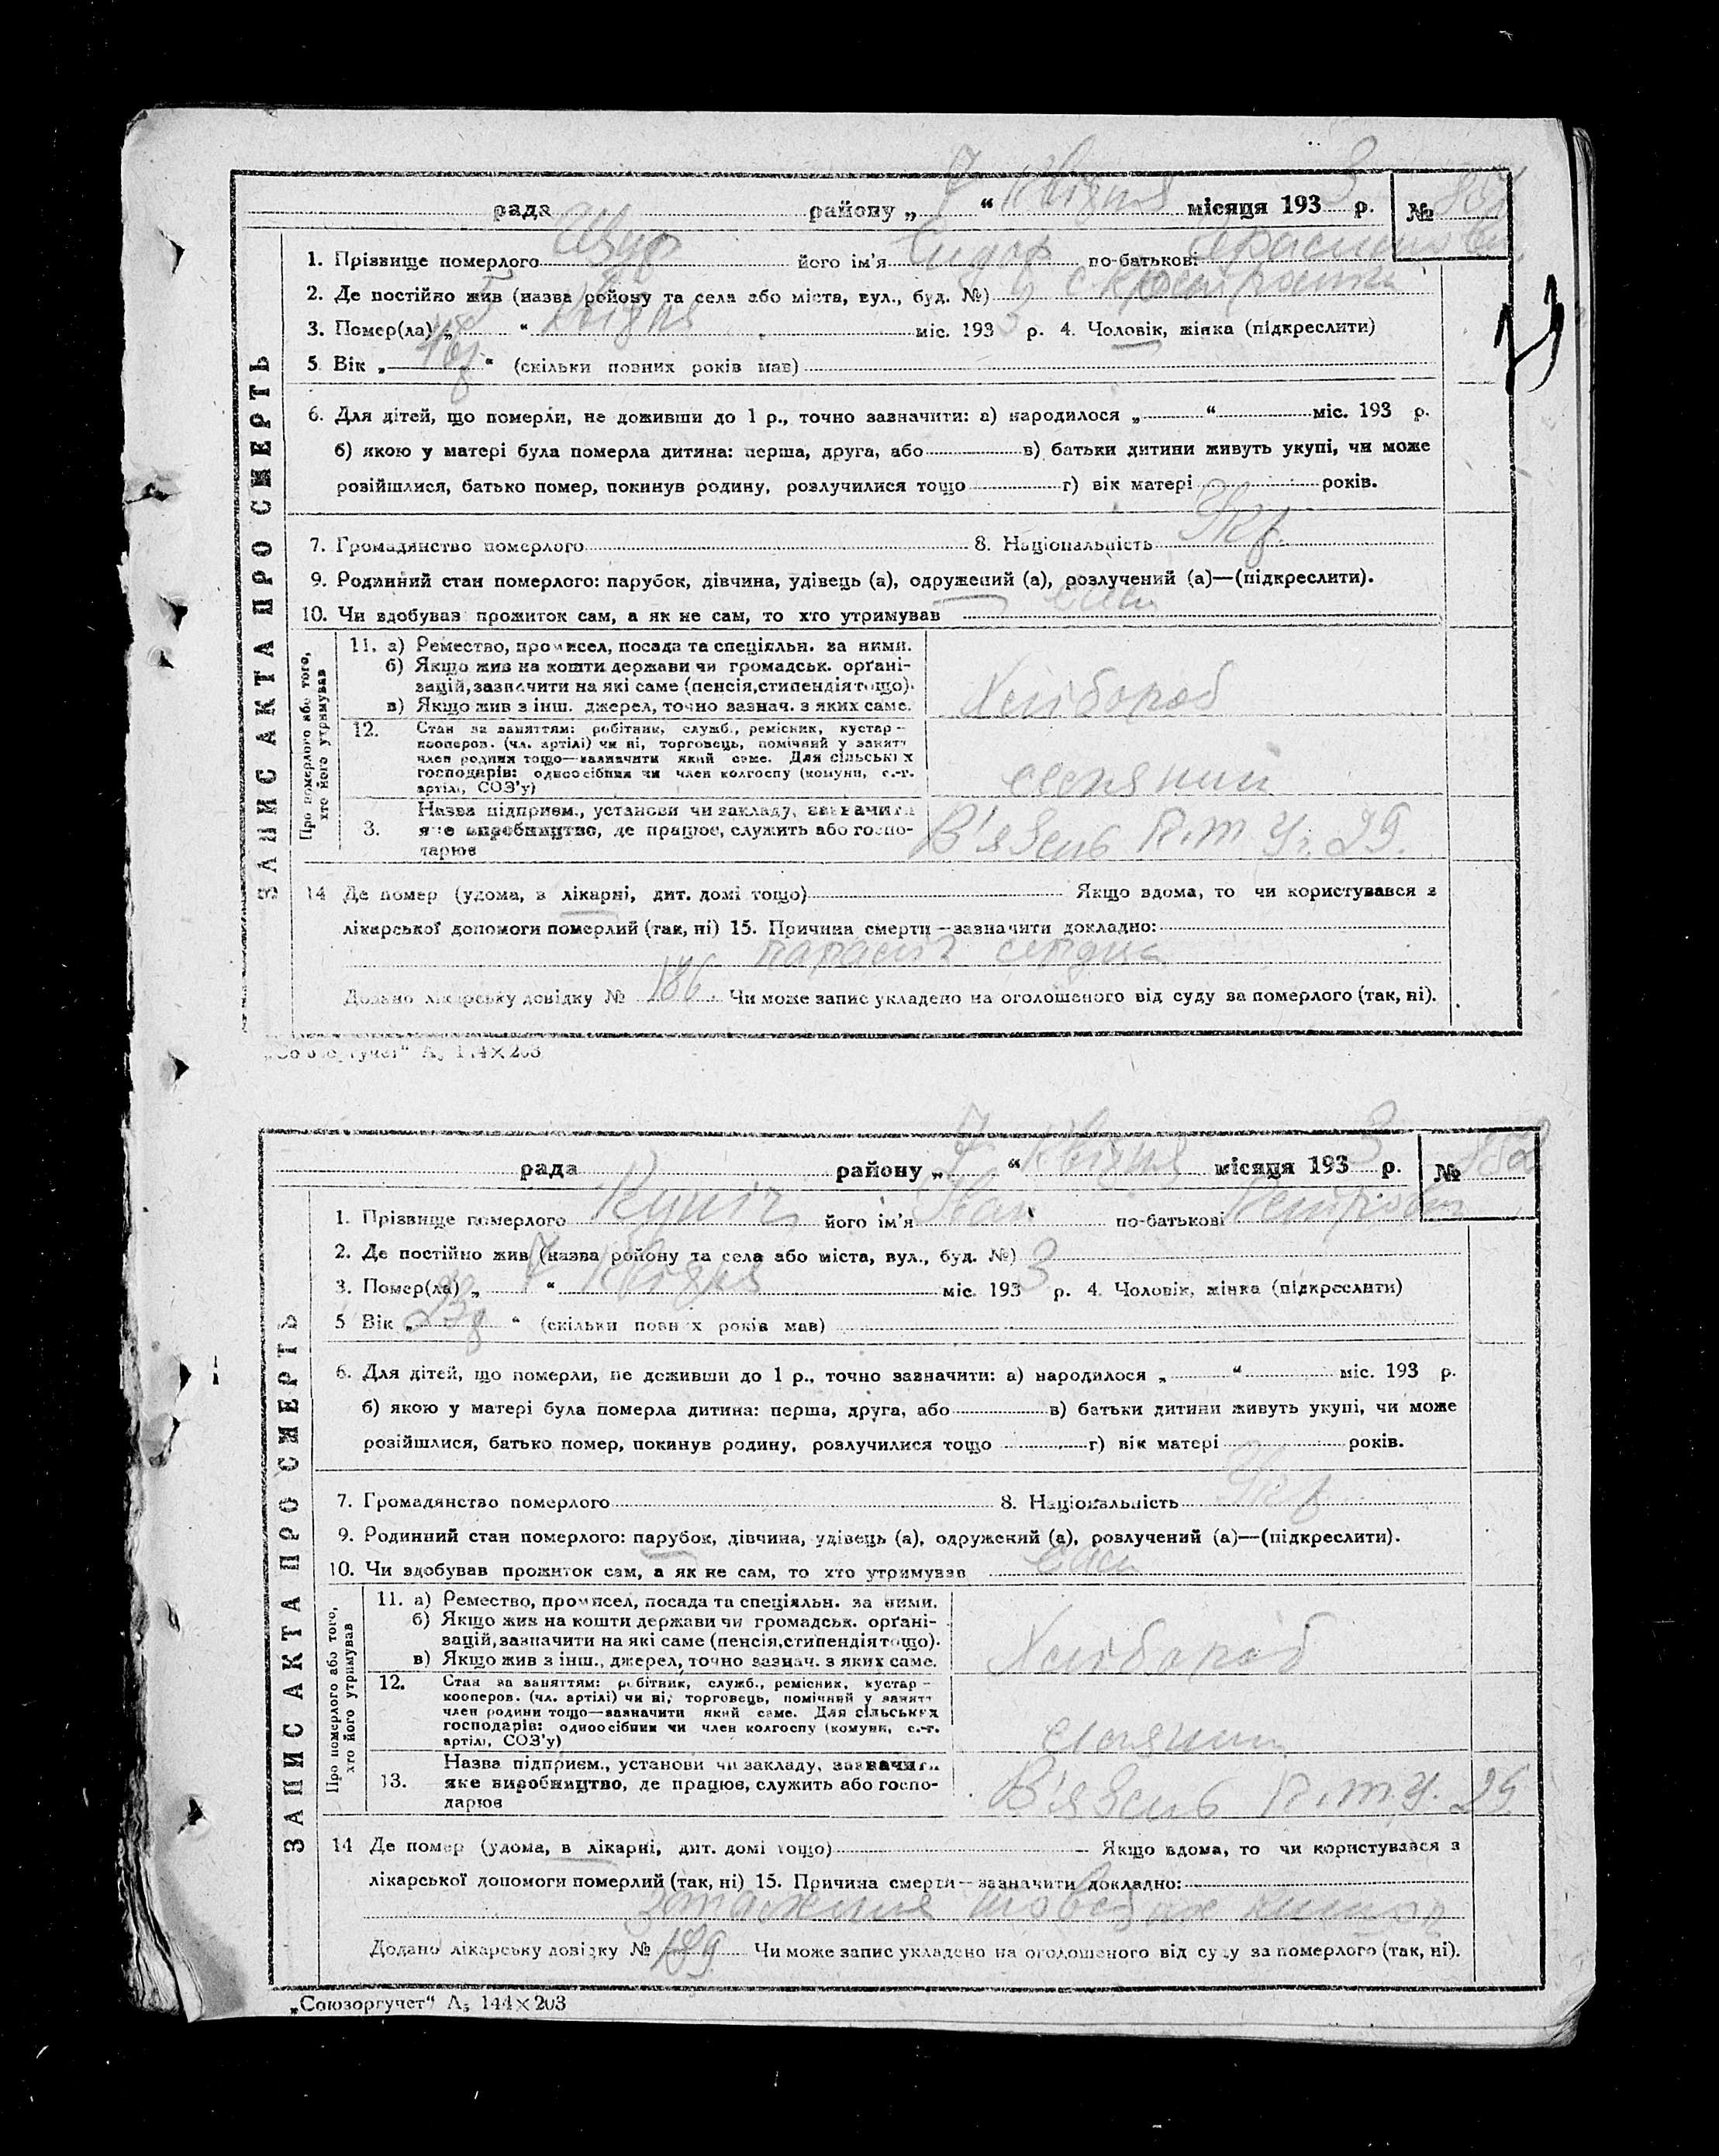 рада району „ 7 “ квітня місяця 193 3 р. №
1. Прізвище померлого Щур його ім'я Сидор по-батькові Герасимович
2. Де постійно жив (назва ройону та села або міста, вул., буд. №) с.
3. Помер(ла) „ “ квітня міс. 193 3 р. 4. Чоловік, жінка (підкреслити)
5. Вік „ “ (скільки повних років мав)
6. Для дітей, що померли, не доживши до 1 р., точно зазначити: а) народилося „ “ міс. 193 р.
б) якою у матері була померла дитина: перша, друга, або в) батьки дитини живуть укупі, чи може
розійшлися, батько помер, покинув родину, розлучилися тощо г) вік матері років.
7. Громадянство померлого 8. Національність Укр.
9. Родинний стан померлого: парубок, дівчина, удівець (а), одружений (а), розлучений (а)—(підкреслити).
10. Чи здобував прожиток сам, а як не сам, то хто утримував сам
ЗАПИС АКТА ПРО СМЕРТЬ
Про померлого або того,
хто його утримував
11. а) Ремество, промисел, посада та спеціяльн. за ними.
б) Якщо жив на кошти держави чи громадськ. орґані-
зацій, зазначити на які саме (пенсія, стипендія тощо).
в) Якщо жив з інш. джерел, точно зазнач. з яких саме.
Хлібороб
12. Стан за заняттям: робітник, служб., ремісник, кустар –
кооперов. (чл. артілі) чи ні, торговець, помічний у занятт
член родини тощо—зазначити який саме. Для сільських
господарів: одноосібник чи член колгоспу (комуни, с.-г.
артілі, СОЗ'у)
селянин
3. Назва підприєм., установи чи закладу, зазначити
яке виробництво, де працює, служить або госпо-
дарює
В'язень П.т.У. 25.
14 Де помер (удома, в лікарні, дит. домі тощо) Якщо вдома, то чи користувався з
лікарської допомоги померлий (так, ні) 15. Причина смерти – зазначити докладно:
параліч серця
Додано лікарську довідку № 186 Чи може запис укладено на оголошеного від суду за померлого (так, ні).
„Союзоргучет“ А5 144×203
рада району „ 7 “ квітня місяця 193 3 р. №
1. Прізвище померлого його ім'я Іван по-батькові Петрович
2. Де постійно жив (назва ройону та села або міста, вул., буд. №)
3. Помер(ла) „ 7 “ квітня міс. 193 3 р. 4. Чоловік, жінка (підкреслити)
5 Вік „ 23 р “ (скільки повних років мав)
6. Для дітей, що померли, не доживши до 1 р., точно зазначити: а) народилося „ “ міс. 193 р.
б) якою у матері була померла дитина: перша, друга, або в) батьки дитини живуть укупі, чи може
розійшлися, батько помер, покинув родину, розлучилися тощо г) вік матері років.
7. Громадянство померлого 8. Національність Укр
9. Родинний стан померлого: парубок, дівчина, удівець (а), одружений (а), розлучений (а)—(підкреслити).
10. Чи здобував прожиток сам, а як не сам, то хто утримував сам
ЗАПИС АКТА ПРО СМЕРТЬ
Про померлого або того,
хто його утримував
11. а) Ремество, промисел, посада та спеціяльн. за ними.
б) Якщо жив на кошти держави чи громадськ. орґані-
зацій, зазначити на які саме (пенсія, стипендія тощо).
в) Якщо жив з інш., джерел, точно зазнач. з яких саме.
Хлібороб
12. Стан за заняттям: робітник, служб., ремісник, кустар –
кооперов. (чл. артілі) чи ні, торговець, помічний у занятт
член родини тощо—зазначити який саме. Для сільських
господарів: одноосібник чи член колгоспу (комуни, с.-г.
артілі, СОЗ'у)
селянин
13. Назва підприєм., установи чи закладу, зазначити
яке виробництво, де працює, служить або госпо-
дарює
В'язень П.т.У. 25
14 Де помер (удома, в лікарні, дит. домі тощо) Якщо вдома, то чи користувався з
лікарської допомоги померлий (так, ні) 15. Причина смерти – зазначити докладно:
кишок
Додано лікарську довідку № 189 Чи може запис укладено на оголошеного від суду за померлого (так, ні).
„Союзоргучет“ А5 144×203